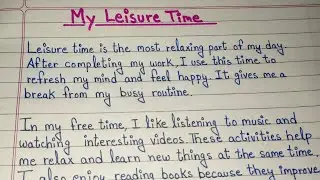 My Leisure Time
Leisure time is the most relaxing part of my day.
After completing my work, I use this time to
refresh my mind and feel happy. It gives me a
break from my busy routine.
In my free time, I like listening to music and
watching interesting videos. These activities help
me relax and learn new things at the same time.
I also enjoy reading books because they improve